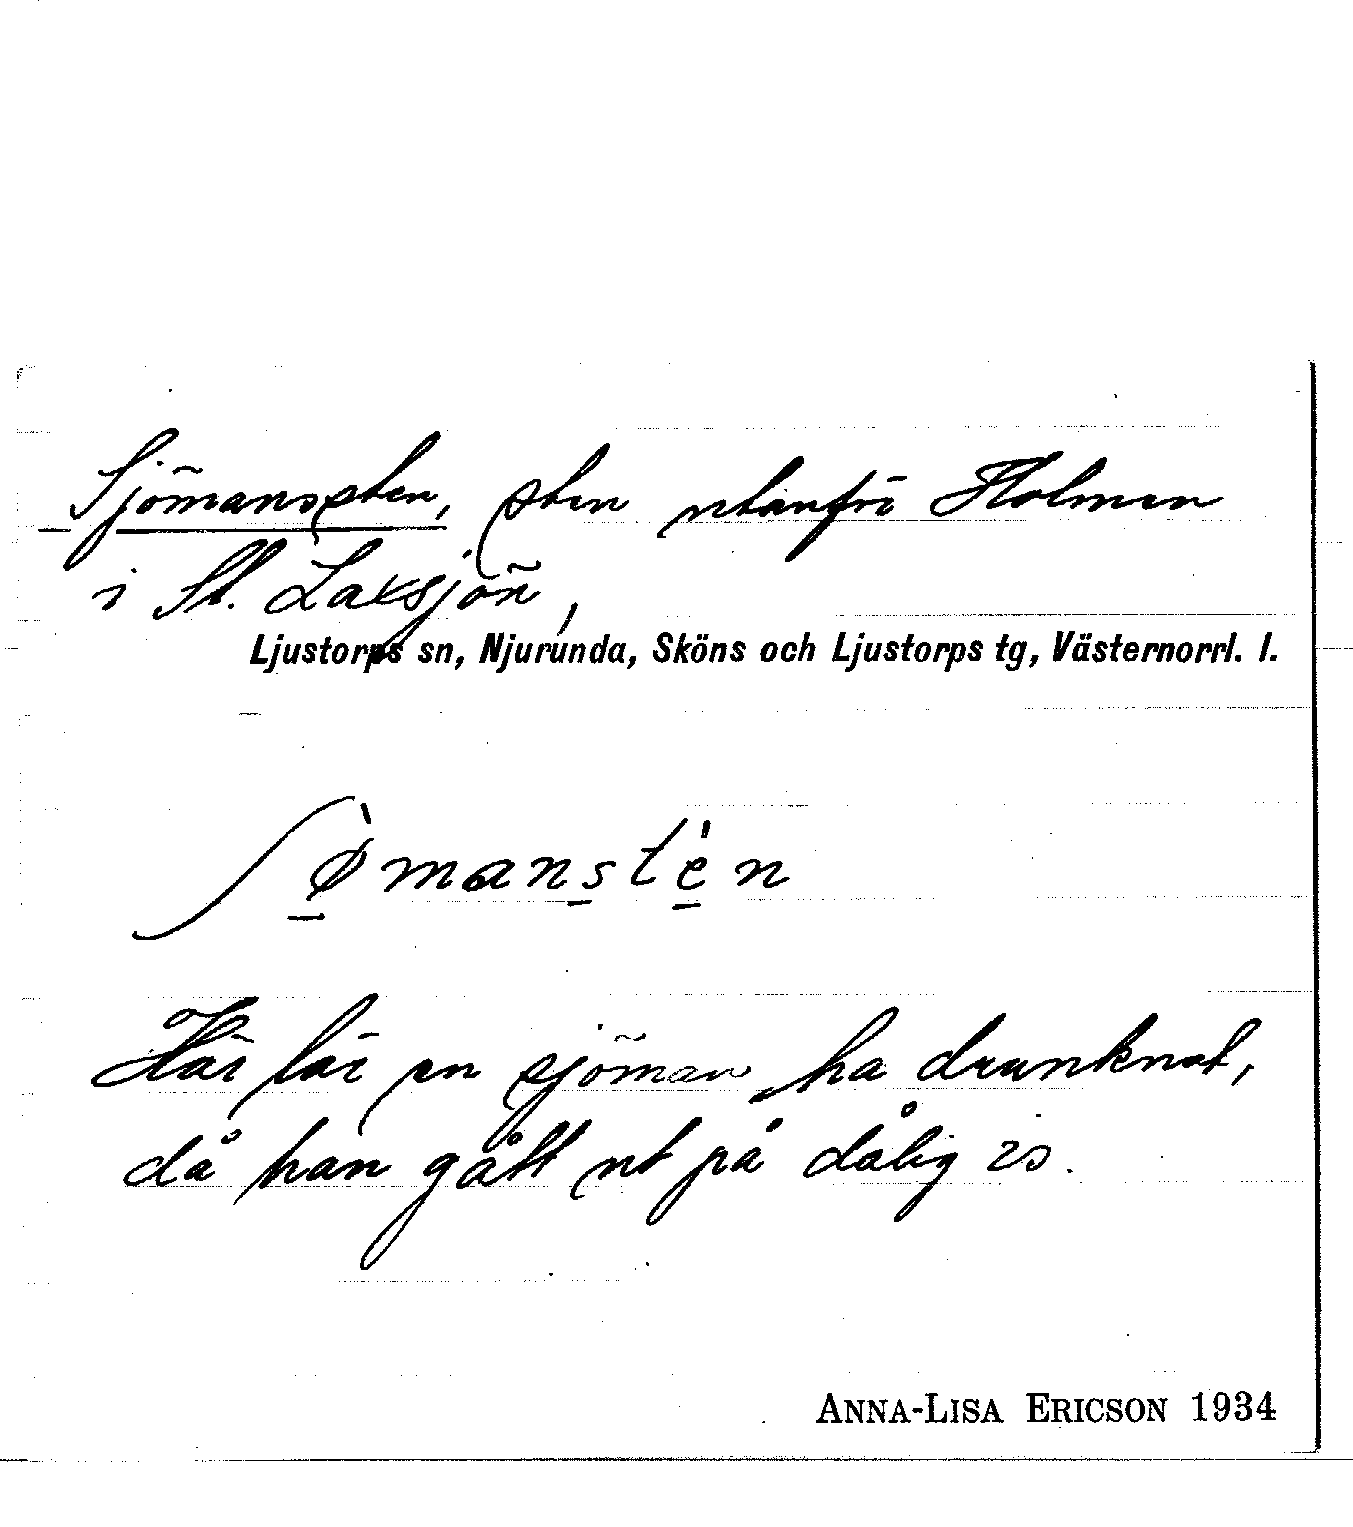 Sjömanssten, sten utanför Holmen
i St. Laxsjön,
Ljustorps sn, Njurunda, Sköns och Ljustorps tg, Västernorrl. l.
ʃø̀manstèn
Här lär en sjöman ha drunknat,
då han gått ut på dålig is.
ANNA-LISA ERICSON 1934